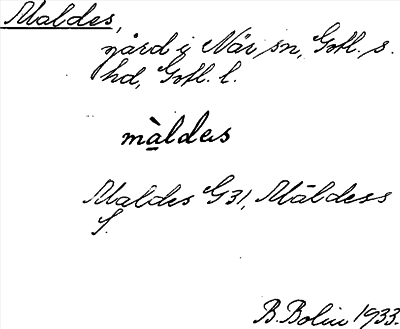 Maldes,
gård i När sn, Gotl. s.
hd, Gotl. l.
màldes
Maldes G 31, Māldess
S.
B. Bolin 1933.